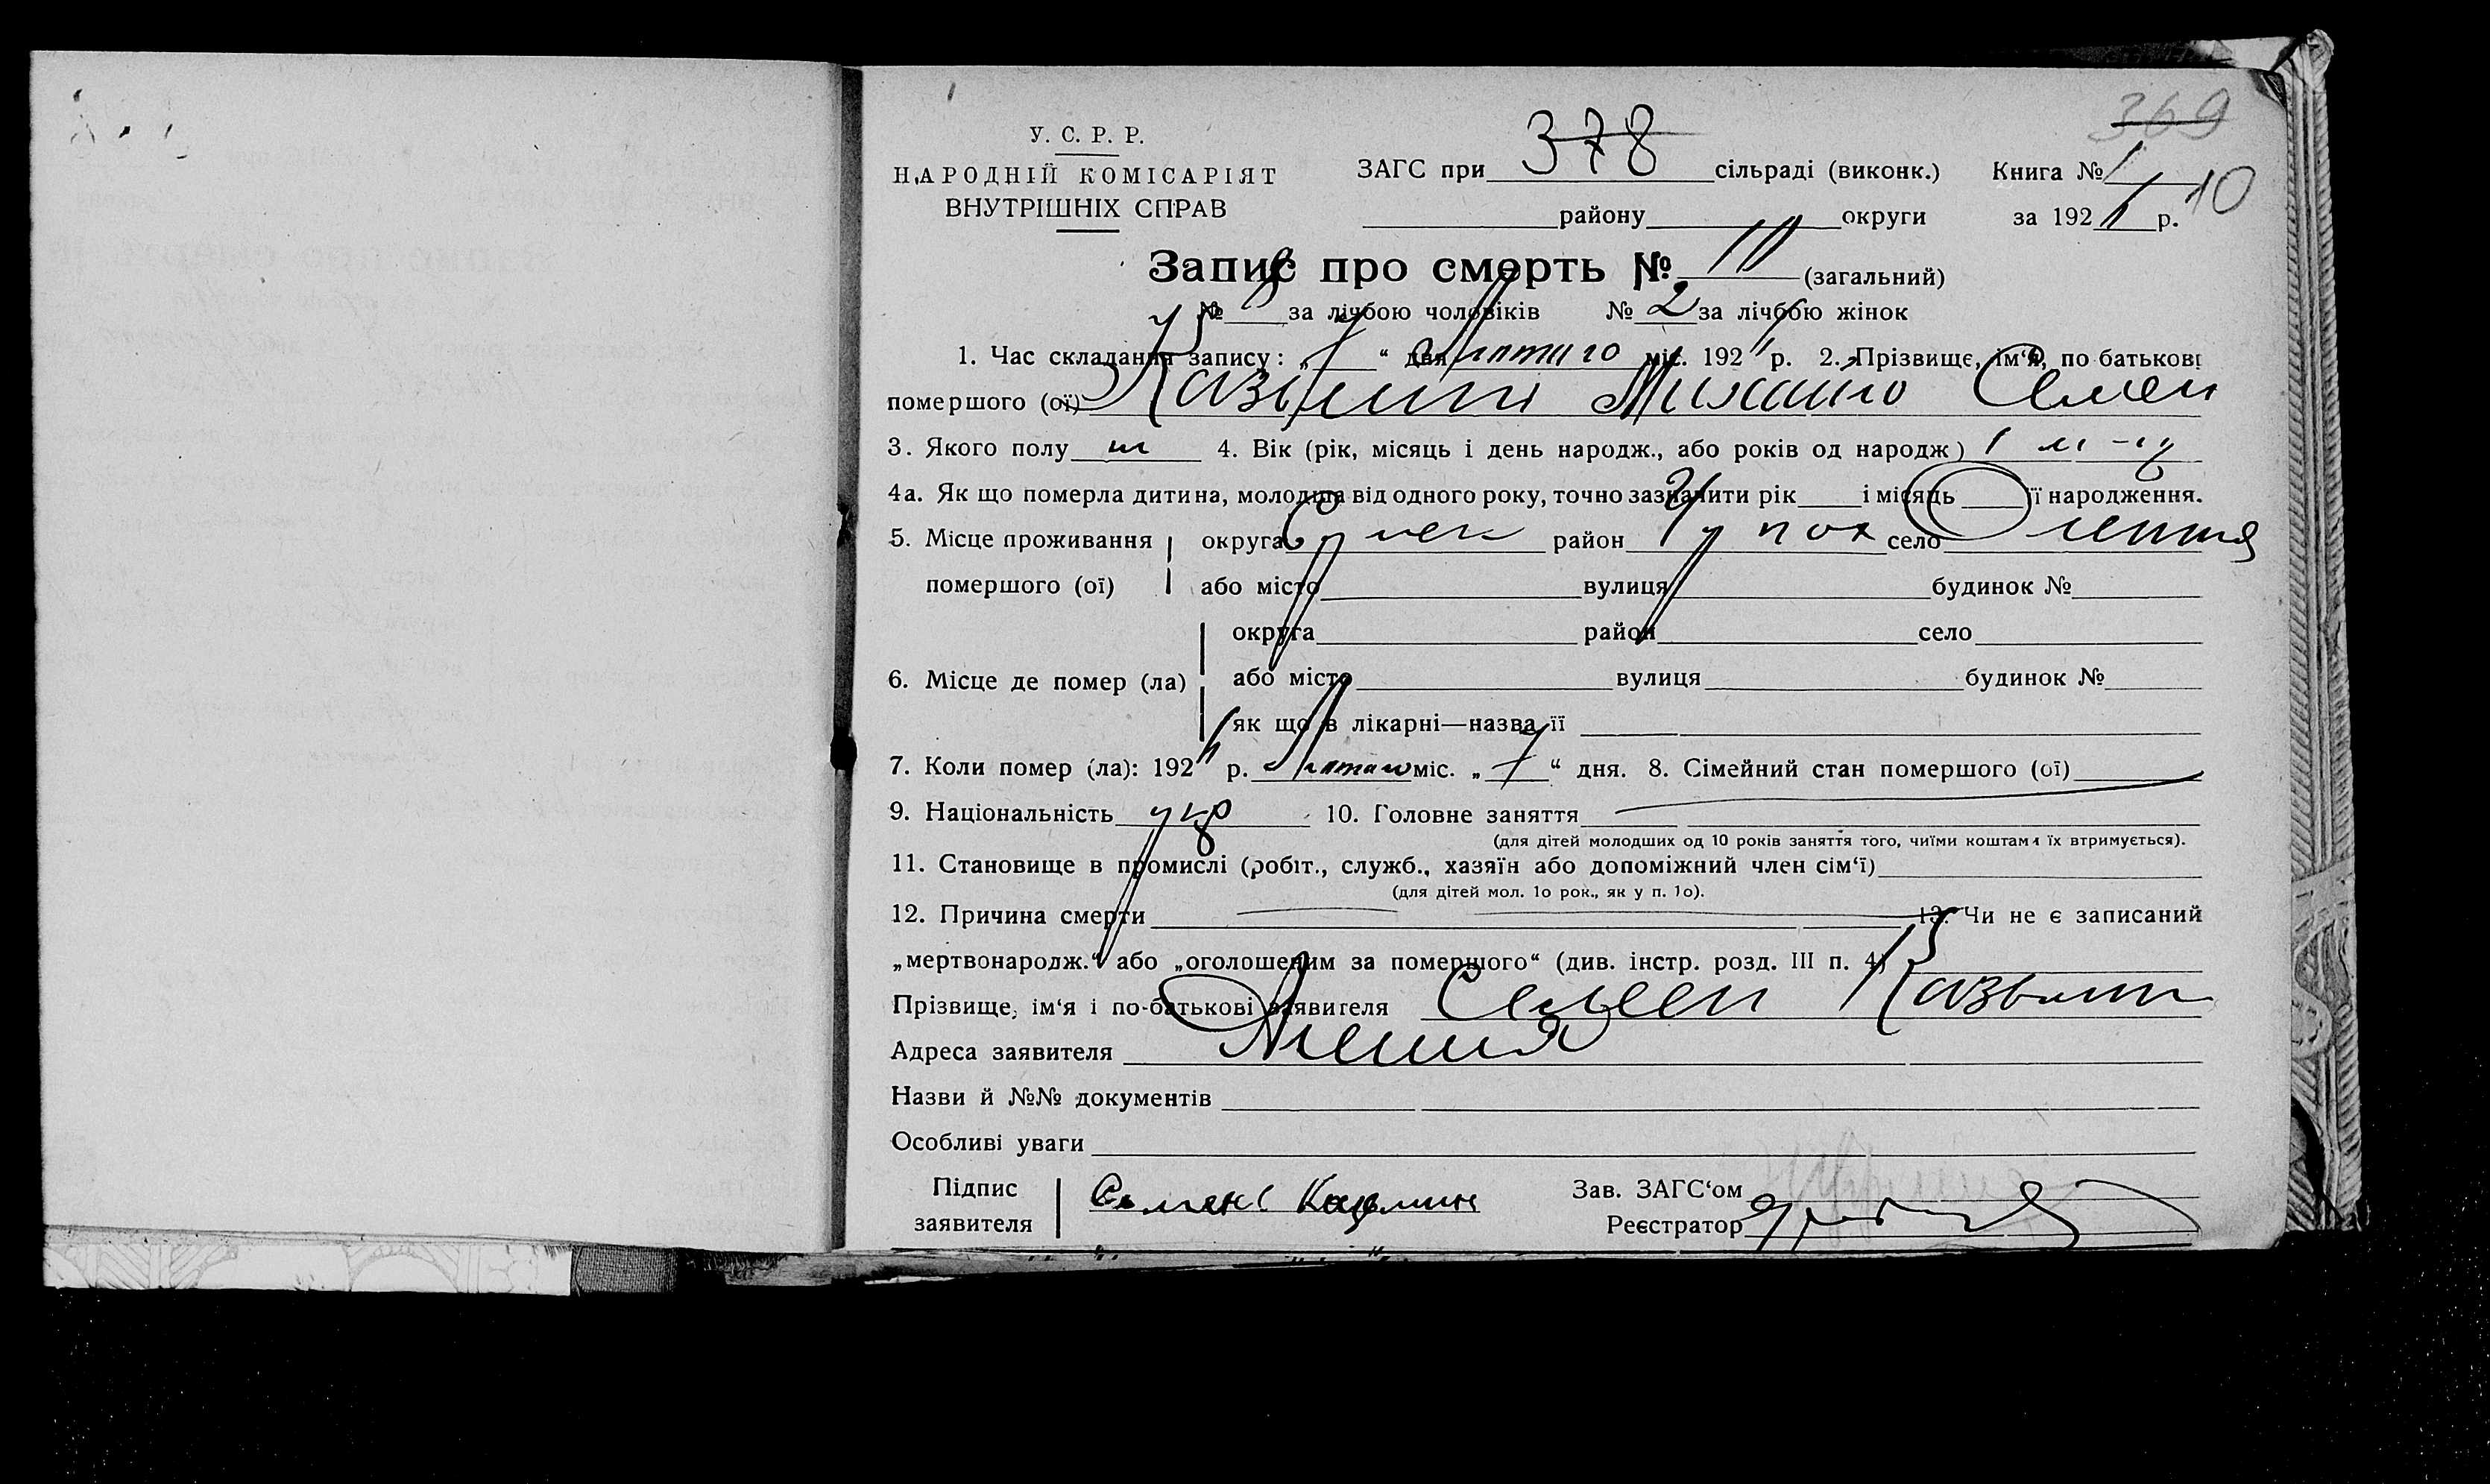 369
У. С. Р. Р.
НАРОДНІЙ КОМІСАРІЯТ
ВНУТРІШНІХ СПРАВ
ЗАГС при 378 сільраді (виконк.) Книга № 1
10
району округи за 192 р.
Запис про смерть № (загальний)
№ за лічбою чоловіків № 2 за лічбою жінок
1. Час складання запису: „ 7 “ дня лютого міс. 192 р. 2. Прізвище, ім‘я, по батькові
помершого (ої) Казьмин Михайло Семен
3. Якого полу м 4. Вік (рік, місяць і день народж., або років од народж) 1 м-ц
4а. Як що померла дитина, молодша від одного року, точно зазначити рік і місяць її народження.
5. Місце проживання округа район село
помершого (ої) або місто вулиця будинок №
округа район село
6. Місце де помер (ла) або місто вулиця будинок №
як що в лікарні—назва її
7. Коли помер (ла): 192 р. лютого міс. „ 7 “ дня. 8. Сімейний стан помершого (ої)
9. Національність укр 10. Головне заняття
(для дітей молодших од 10 років заняття того, чиїми коштами їх втримується).
11. Становище в промислі (робіт., служб., хазяїн або допоміжний член сім‘ї)
(для дітей мол. 1о рок., як у п. 1о).
12. Причина смерти 13. Чи не є записаний
„мертвонародж.“ або „оголошеним за помершого“ (див. інстр. розд. III п. 4)
Прізвище, ім‘я і по-батькові заявителя Семен Казьмин
Адреса заявителя
Назви й №№ документів
Особливі уваги
Підпис
заявителя
Семен Казьмин
Зав. ЗАГС‘ом
Реєстратор